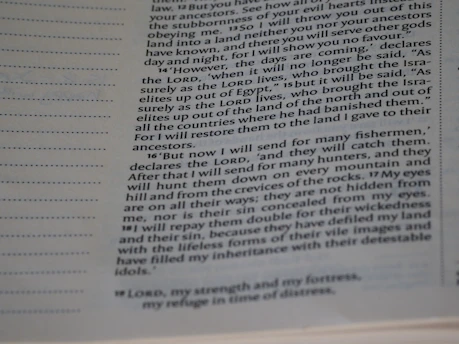 law. ¹²But you have
your ancestors. See how all of
the stubbornness of your evil hearts instead
obeying me. ¹³So I will throw you out of this
land into a land neither you nor your ancestors
have known, and there you will serve other gods
day and night, for I will show you no favour."
¹⁴'However, the days are coming,' declares
the LORD, 'when it will no longer be said, "As
surely as the LORD lives, who brought the Isra-
elites up out of Egypt," ¹⁵but it will be said, "As
surely as the LORD lives, who brought the Isra-
elites up out of the land of the north and out of
all the countries where he had banished them."
For I will restore them to the land I gave to their
ancestors.
¹⁶'But now I will send for many fishermen,'
declares the LORD, 'and they will catch them.
After that I will send for many hunters, and they
will hunt them down on every mountain and
hill and from the crevices of the rocks. ¹⁷My eyes
are on all their ways; they are not hidden from
me, nor is their sin concealed from my eyes.
¹⁸I will repay them double for their wickedness
and their sin, because they have defiled my land
with the lifeless forms of their vile images and
have filled my inheritance with their detestable
idols.'
¹⁹LORD, my strength and my fortress,
my refuge in time of distress,